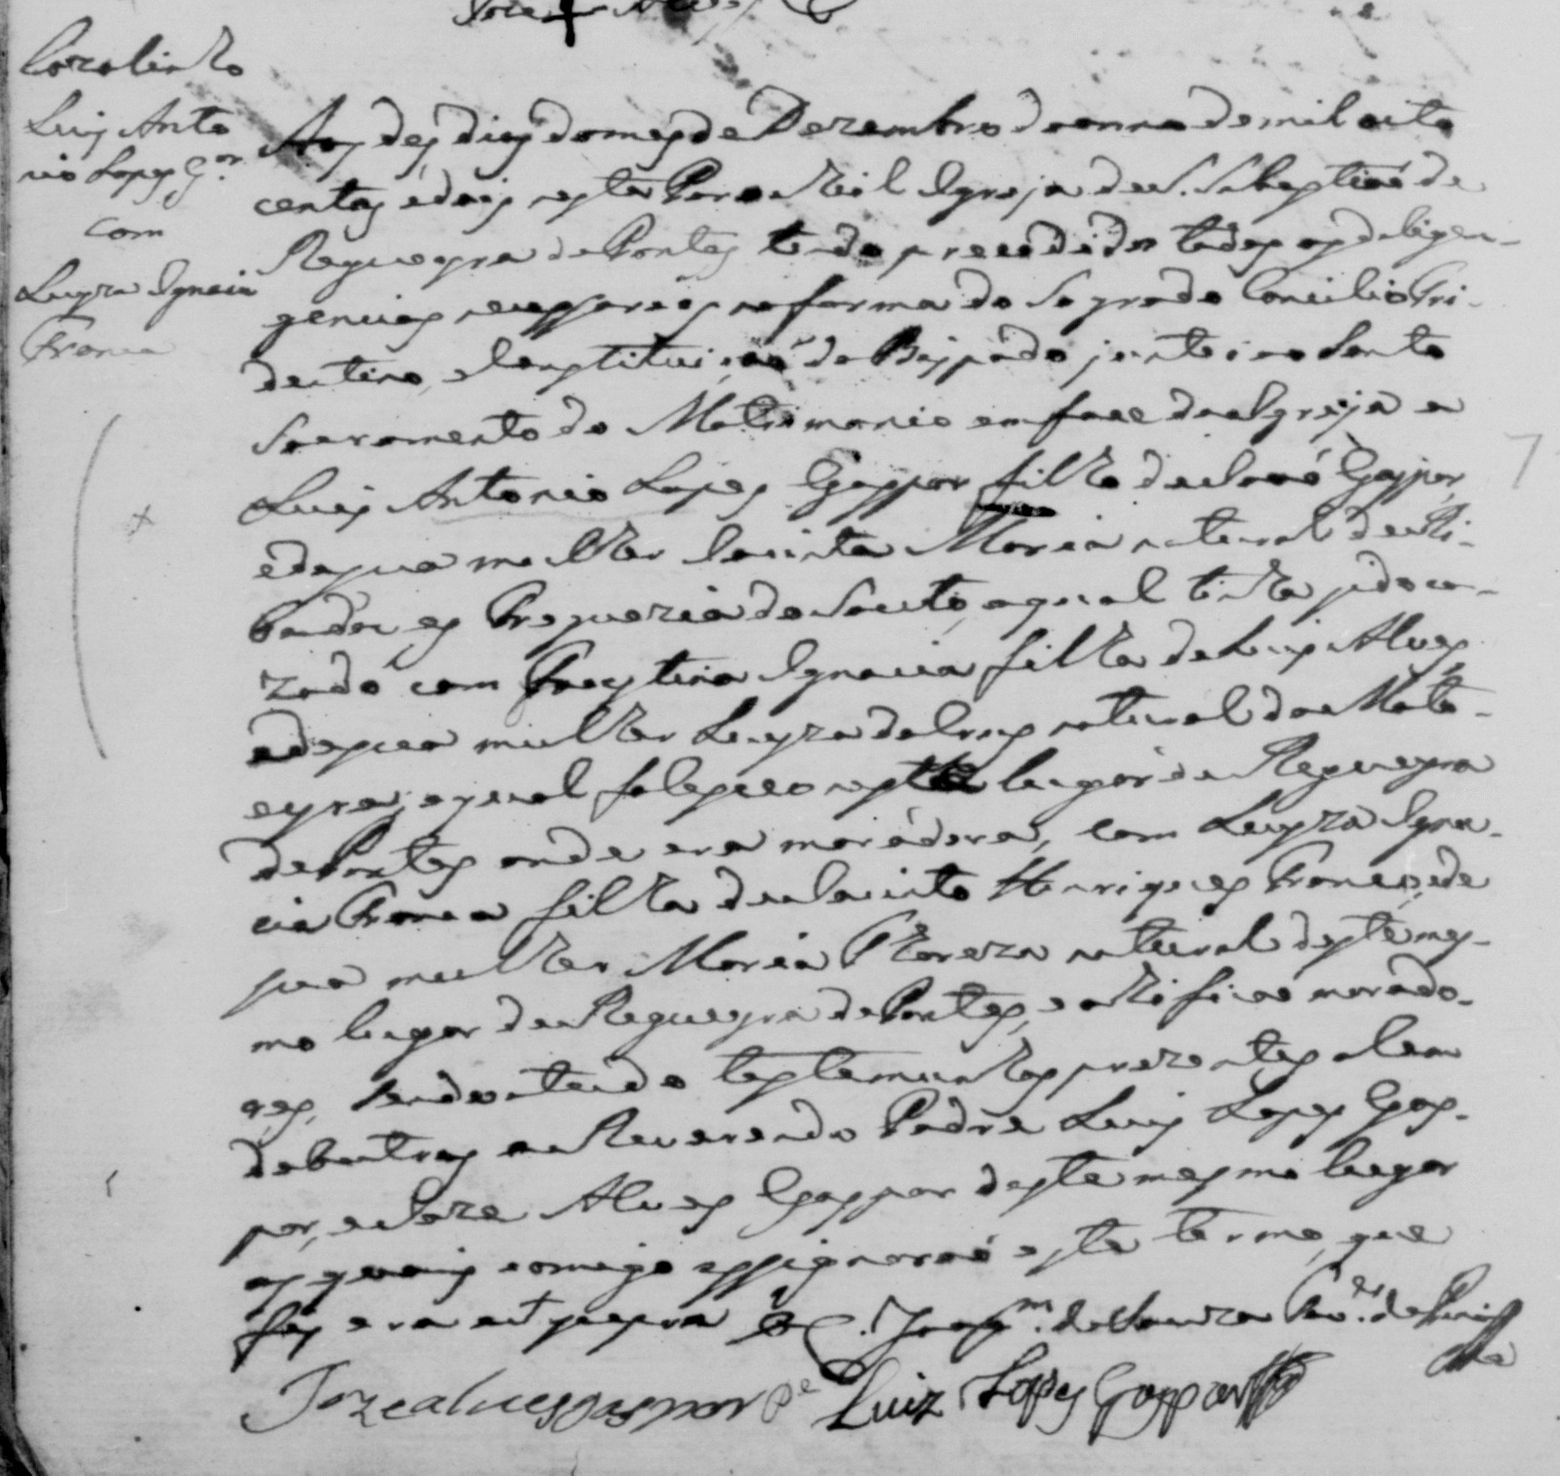 Luis Anto
nio Lopes G.ar
com
Luyza Ignacia
Franca
Aos des dias do mes de Dezembro do anno de mil oito
centos e dois nesta Paroshial Igreja de S. Sebastiaõ de
Regueyra de Pontes tendo precedido todas as deligen-
gencias necessarias na forma do Sagrado Concilio Tri-
dentino, e Constituiçaõ do Bispado juntei no Santo
Sacramento do Matrimonio em face da Igreja a
Luis Antonio Lopes Gaspar filho de Joaõ Gaspar,
e de sua mulher Jacinta Maria natural de
Freguezia do Souto, o qual tinha sido ca-
zado com Faustina Ignacia filha de Luis Alves
e de sua mulher Luyza da Crus natural da Mato-
eyra, a qual falesceo neste lugar de Regueyra
de Pontes onde era moradora, com Luyza Igna-
cia Franca filha de Jacinto Henriques Franco, e de
sua mulher Maria Thereza natural deste mes-
mo lugar de Regueyra de Pontes, e ahi ficaõ morado-
res, sendo a tudo testemunhas prezentes alem
de outras o Reverendo Padre Luis Lopes Gas-
par, e Joze Alves Gaspar deste mesmo lugar
os quais comigo assignaraõ este termo, que
fis era ut supra O C. Joaq.m de Souza
Joze alves gaspar P.e Luiz Lopes Gaspar